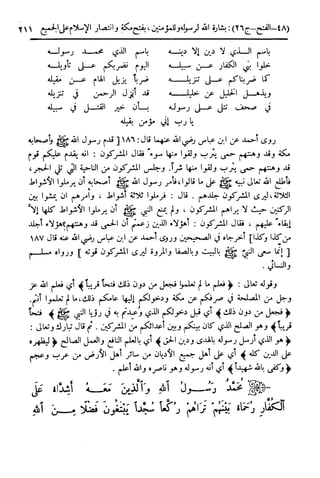 (٤٨-الفتح -ج٢٦): بشارة الله لرسوله وللمؤمنين، بفتح مكة وانتصار الإسلام على الجميع ٢١١
باسم الــذي لا دين إلا دينــه باسم الذي محمــد رسولــه
خلوا بني الكفار عــن سبيلــه اليوم نضربكم عــلى تأويلــه
كما ضربناكم عــلى تنزيلــه ضرباً يزيل الهام عــن مقيله
ويذهــل الخليل عن خليلــه قد أنزل الرحمن في تنزيله
في صحف تتلى عــلى رسوله بــأن خير القتــل في سبيله
يا رب إني مؤمن بقيله
روى أحمد عن ابن عباس رضي الله عنهما قال: ١٨٦[ قدم رسول الله ﷺ وأصحابه
مكة وقد وهنتهم حمى يثرب ولقوا منها سوءً فقال المشركون: إنه يقدم عليكم قوم
قد وهنتهم حمى يثرب ولقوا منها شراً. وجلس المشركون من الناحية التي تلي الحجر،
فأطلع الله تعالى نبيه ﷺ على ما قالوا، فأمر رسول الله ﷺ أصحابه أن يرملوا الأشواط
الثلاثة، ليرى المشركون جلدهم. قال: فرملوا ثلاثة أشواط، وأمرهم ان يمشوا بين
الركنين حيث لا يراهم المشركون، ولم يمنع النبي ﷺ أن يرملوا الأشواط كلها إلاّ
إبقاءً عليهم، فقال المشركون: أهؤلاء الذين زعمتم أن الحمى قد وهنتهم؟هؤلاء أجلد
من كذا وكذا] أخرجاه في الصحيحين وروى أحمد عن ابن عباس رضي الله عنه قال ١٨٧
[ إنما سعى النبي ﷺ بالبيت وبالصفا والمروة ليرى المشركون قوته ] ورواه مسلم
والنسائي.
وقوله تعالى: ﴿ فعلم ما لم تعلموا فجعل من دون ذلك فتحاً قريباً ﴾ أي فعلم الله عز
وجل من المصلحة في صرفكم عن مكة ودخولكم إليها عامكم ذلك، ما لم تعلموا أنتم.
﴿ فجعل من دون ذلك ﴾ أي قبل دخولكم الذي وُعدتم به في رؤيا النبي ﷺ ﴿ فتحاً
قريباً ﴾ وهو الصلح الذي كان بينكم وبين أعدائكم من المشركين. ثم قال تبارك وتعالى:
﴿ هو الذي أرسل رسوله بالهدى ودين الحق ﴾ أي بالعلم النافع والعمل الصالح ﴿ ليظهره
على الدين كله ﴾ أي على أهل جميع الأديان من سائر أهل الأرض من عرب وعجم
﴿ وكفى بالله شهيداً ﴾ أي أنه رسوله وهو ناصره والله أعلم.
مُّحَمَّدٌ رَّسُولُ اللَّهِ وَالَّذِينَ مَعَهُ أَشِدَّاءُ عَلَى
الْكُفَّارِ رُحَمَاءُ بَيْنَهُمْ تَرَاهُمْ رُكَّعًا سُجَّدًا يَبْتَغُونَ فَضْلًا مِّنَ اللَّهِ